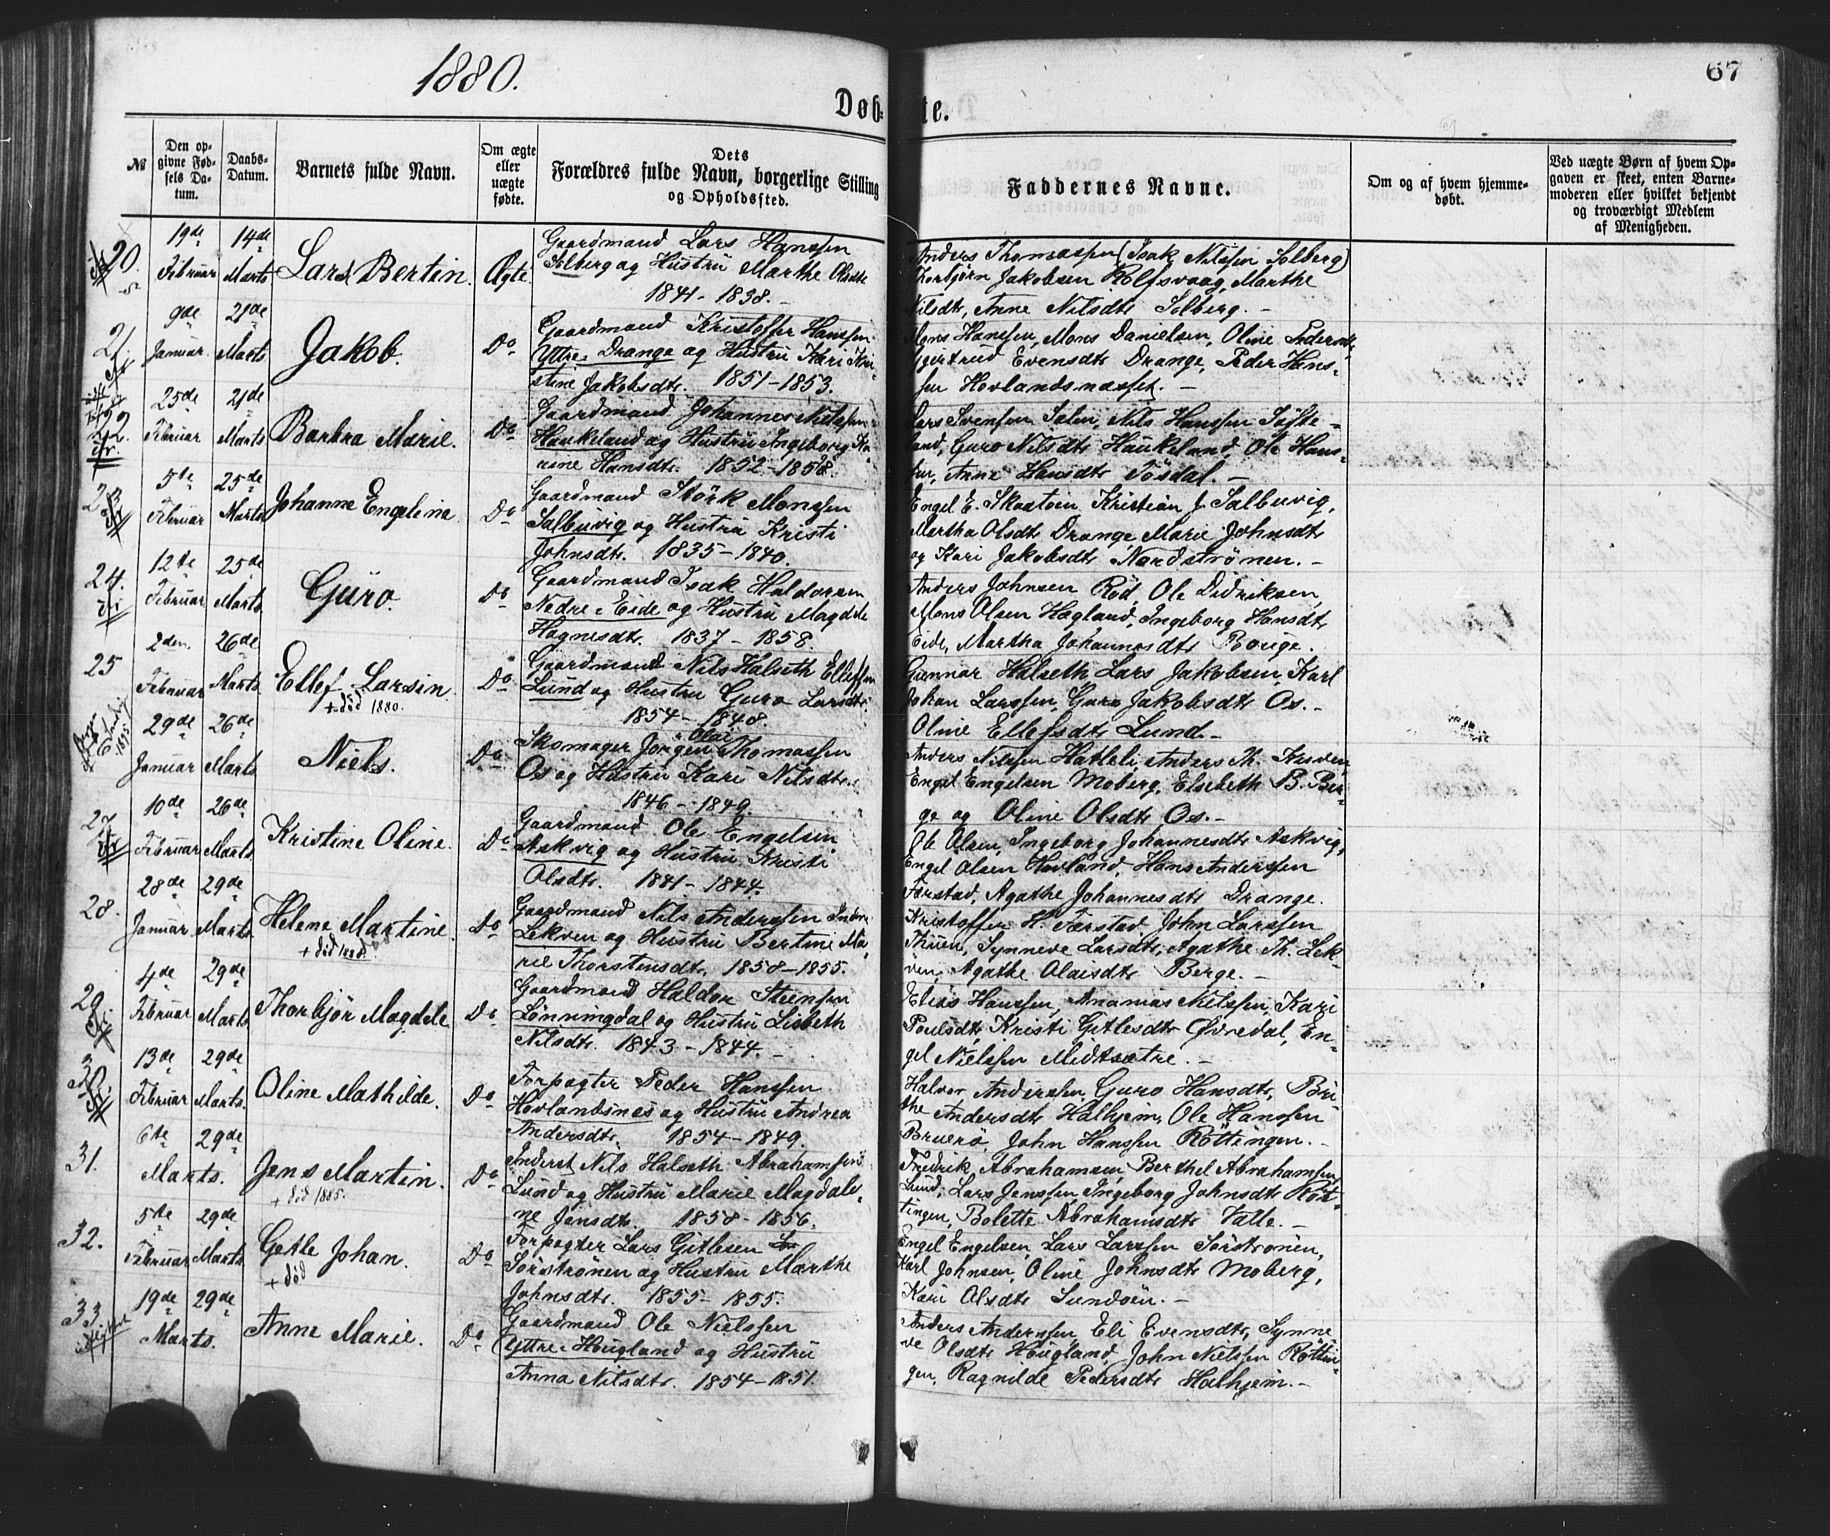 1880.
67
Døb-
te.
№
Den op-
givne Fød-
sels Da-
tum.
Daabs-
Datum.
Barnets fulde Navn.
Om ægte
eller
uægte
fødte.
Dets
Forældres fulde Navn, borgerlige Stilling
og Opholdssted.
Faddernes Navne.
Om og af hvem hjemme-
døbt.
Ved uægte Børn af hvem Op-
gaven er skeet, enten Barne-
moderen eller hvilket bekjendt
og troværdigt Medlem
af Menigheden.
20. 19de Februar 14de Marts Lars Bertin. Ægte.
Gaardmand Lars Hanssen
Solberg og Hustru Marthe Olsdtr
1841 - 1838. -
Anders Thomassen (Isak Nilssen Solberg)
Thorbjørn Jakobsen Rolfsvaag, Marthe
Nilsdtr, Anne Nilsdtr Solberg. -
21. 9de Januar. 21de Marts Jakob. Do
Gaardmand Kristoffer Hanssen
Yttre-Drange og Hustru Kari Kri-
stine Jakobsdtr. 1851-1853.
Mons Hanssen, Mons Danielsen, Oline Pedersdtr,
Gjertrud Evensdtr Drange, Peder Hans-
sen Hovlandsnæsset. -
22. 25de Februar 21de Marts Barbra Marie. Do
Gaardmand Johannes Nielssen
Haukeland og Hustru Ingeborg Ka-
rine Hansdtr. 1852-1858.
Lars Svensen Salen, Nils Hanssen Søfte-
land, Guro Nilsdtr Haukeland, Ole Hans-
sen, Anne Hansdtr Tøsdal. -
23. 5te Februar 25de Marts Johanne Engelina Do
Gaardmand Størk Monssen
Salbuvig og Hustru Kristi
Johnsdtr. 1835-1840.
Engel E. Skaatøen, Kristian J. Salbuvig,
Martha Olsdtr Drange Marie Johnsdtr
og Kari Jakobsdtr Nordstrønen. -
24. 12te Februar 25de Marts. Guro. Do
Gaardmand Isak Haldorsen
Nedre-Eide og Hustru Magdele
Hagnesdtr. 1837 - 1858.
Anders Johnsen Rød, Ole Didriksen,
Mons Olsen Hagland, Ingeborg Hansdtr
Eide, Martha Johannesdtr Borge.
25 2den Februar 26de Marts. Ellef Larsin. Do
+ død 1880.
Gaardmand Nils Halseth Elleffsen
Lund og Hustru Guro Larsdtr.
1854 - 1848.
Gunnar Halseth, Lars Jakobsen, Karl
Johan Larssen, Guro Jakobsdtr Os. -
Oline Ellefsdtr Lund. -
29de Januar 26de Marts. Niels. Do
Skomager Jørgen Olai Thomassen
Os og Hustru Kari Nilsdtr.
1846 - 1849.
Anders Nilssen Hatleli, Anders Th.
Engel Engelsen Moberg, Elsebeth B. Ber-
ge og Oline Olsdtr Os. -
27. 10de Februar 26de Marts. Kristine Oline. Do
Gaardmand Ole Engelsen
Askvig og Hustru Kristi
Olsdtr. 1841 - 1844.
Ole Olsen, Ingeborg Johannesdtr Askvig,
Engel Olsen Hovland, Hans Anderssen
Færstad, Agathe Johannesdtr Drange.
28. 28de Januar 29de Marts. Helene Martine. Do
+ død 1880.
Gaardmand Nils Anderssen Indre
Lekven og Hustru Bertine Ma-
rie Thorstensdtr. 1858-1855.
Kristoffer H. Færstad, John Larssen
Thuen, Synneve Larsdtr, Agathe Th. Lek-
ven, Agathe Olaisdtr Berge. -
29. 4de Februar 29de Marts. Thorbjør Magdele Do
Gaardmand Haldor Steensen
Lønningdal og Hustru Lisbeth
Nilsdtr. 1843 - 1844. -
Elias Hanssen, Ananias Nielssen, Kari
Poulsdtr, Kristi Gitlesdtr Øvredal, En-
gel Nielssen Midtsætre. -
30. 13de Februar 29de Marts. Oline Mathilde. Do
Forpagter Peder Hanssen
Hovlandsnes og Hustru Andrea
Andersdtr. 1854-1849.
Halvor Anderssen, Guro Hansdtr, Bri-
the Andersdtr Halhjem, Ole Hanssen
Bruerø, John Hanssen Røttingen. -
31. 6te Marts. 29de Jens Martin. Do
+ død 1885.
Inderst Nils Halseth Abrahamsen
Lund og Hustru Marie Magdale-
ne Jensdtr. 1858-1856.
Fredrik Abrahamsen, Berthel Abrahamsen
Lund, Lars Jenssen, Ingeborg Johnsdtr Røt-
tingen, Bolette Abrahamsdtr Valle. -
32. 5te Februar 29de Marts. Getle Johan. Do
+ død
Forpagter Lars Gitlesen
Sørstrønen og Hustru Marthe
Johnsdtr. 1855-1855.
Engel Engelsen, Lars Larssen Sørstrønen,
Karl Johnsen, Oline Johnsdtr Moberg,
Kari Olsdtr Sundøen. -
33. 19de Marts. 29de Anne Marie. Do
Gaardmand Ole Nielssen
Yttre-Hougland og Hustru
Anna Nilsdtr. 1854-1851.
Anders Anderssen, Eli Evensdtr, Synne-
ve Olsdtr Hougland, John Nielssen Røttin-
gen, Ragnilde Pedersdtr Halhjem. -